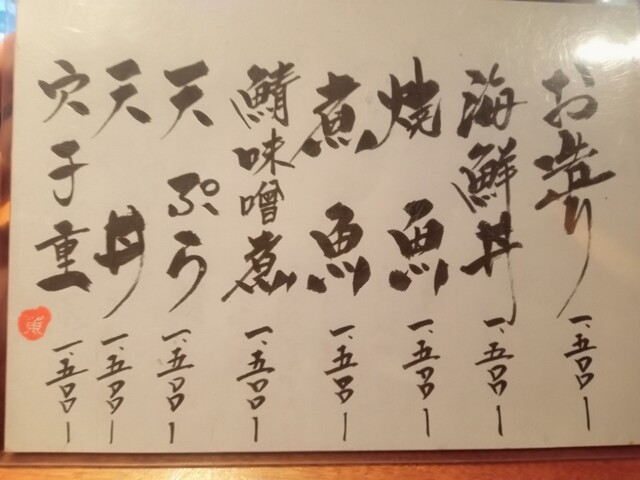 お造り 一、五〇〇ー
海鮮丼 一、五〇〇ー
焼魚 一、五〇〇ー
煮魚 一、五〇〇ー
鯖味噌煮 一、五〇〇ー
天ぷら 一、五〇〇ー
天丼 一、五〇〇ー
穴子重 一、五〇〇ー
魚